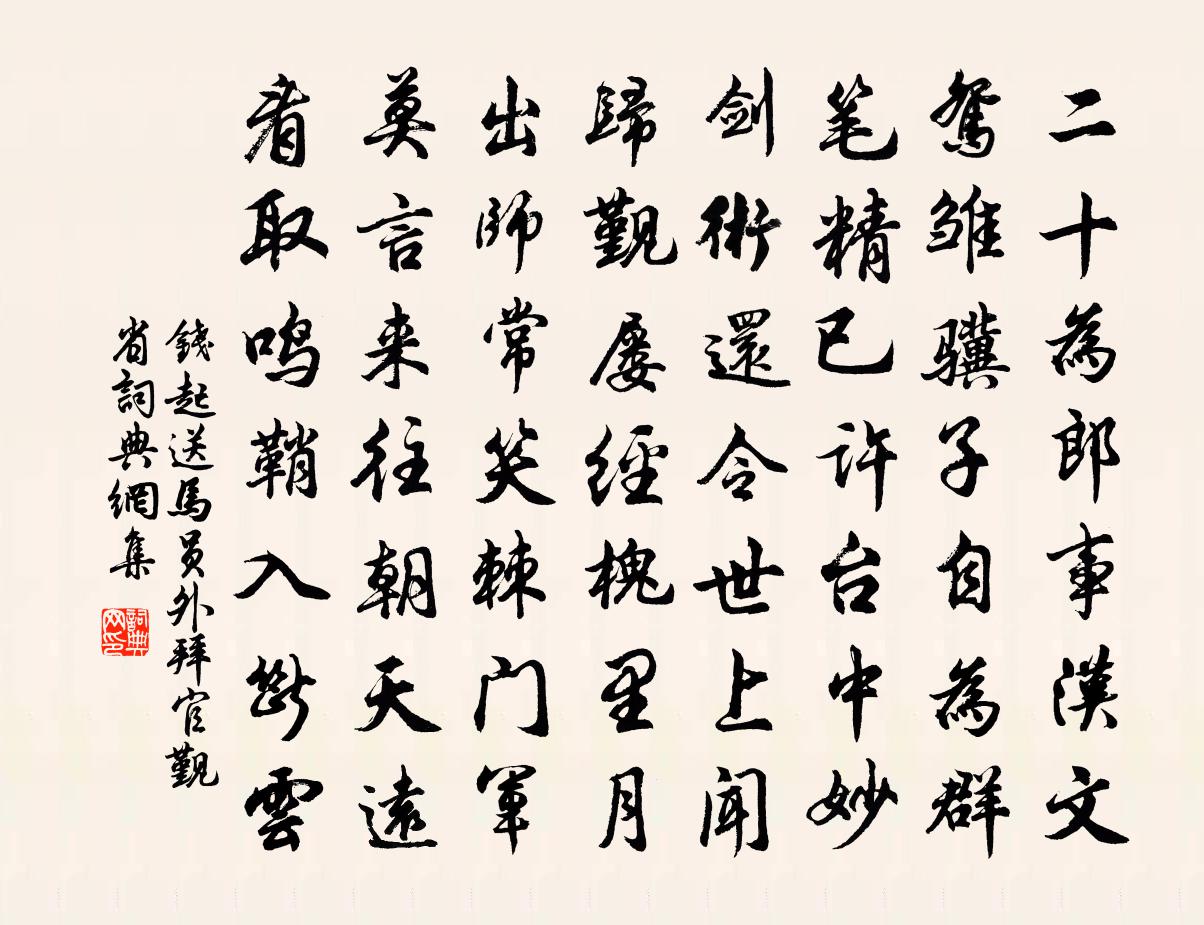 二十為郎事漢文
鴛雛驥子自為群
笔精已許台中妙
剑術還令世上聞
歸覲屡經槐里月
出師常笑棘门軍
莫言来往朝天遠
看取鸣鞘入斷雲
錢起送馬员外拜官覲
省詞典網集
詞典网印